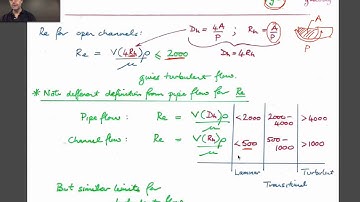 geometry
Re for open channels: Dh = 4A/P ; Rh = A/P A
P
Re = V(4Rh)ρ/μ ≤ 2000 Dh = 4Rh
gives turbulent flow.
* Note different definition from pipe flow for Re
Pipe flow: Re = V(Dh)ρ/μ <2000 2000-4000 >4000
Channel flow: Re = V(Rh)ρ/μ <500 500-1000 >1000
Laminar Transitional Turbulent
But similar limits for
turbulent flow